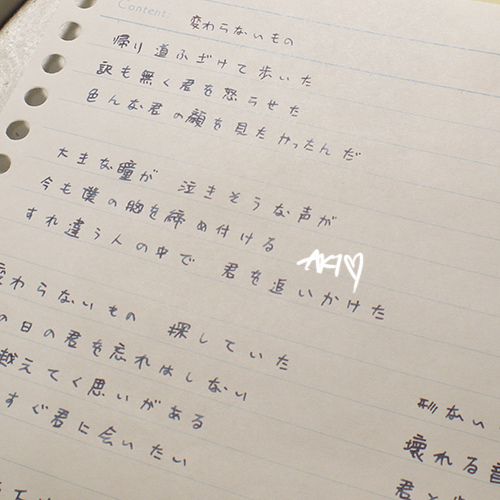 Content
変わらないもの
帰り道ふざけて歩いた
訳も無く君を怒らせた
色んな君の顔を見たかったんだ
大きな瞳が 泣きそうな声が
今も僕の胸を締め付ける
すれ違う人の中で 君を追いかけた
変わらないもの 探していた
の日の君を忘れはしない
越えてく思いがある
すぐ君に会いたい
AKI♡
壊れる
君と